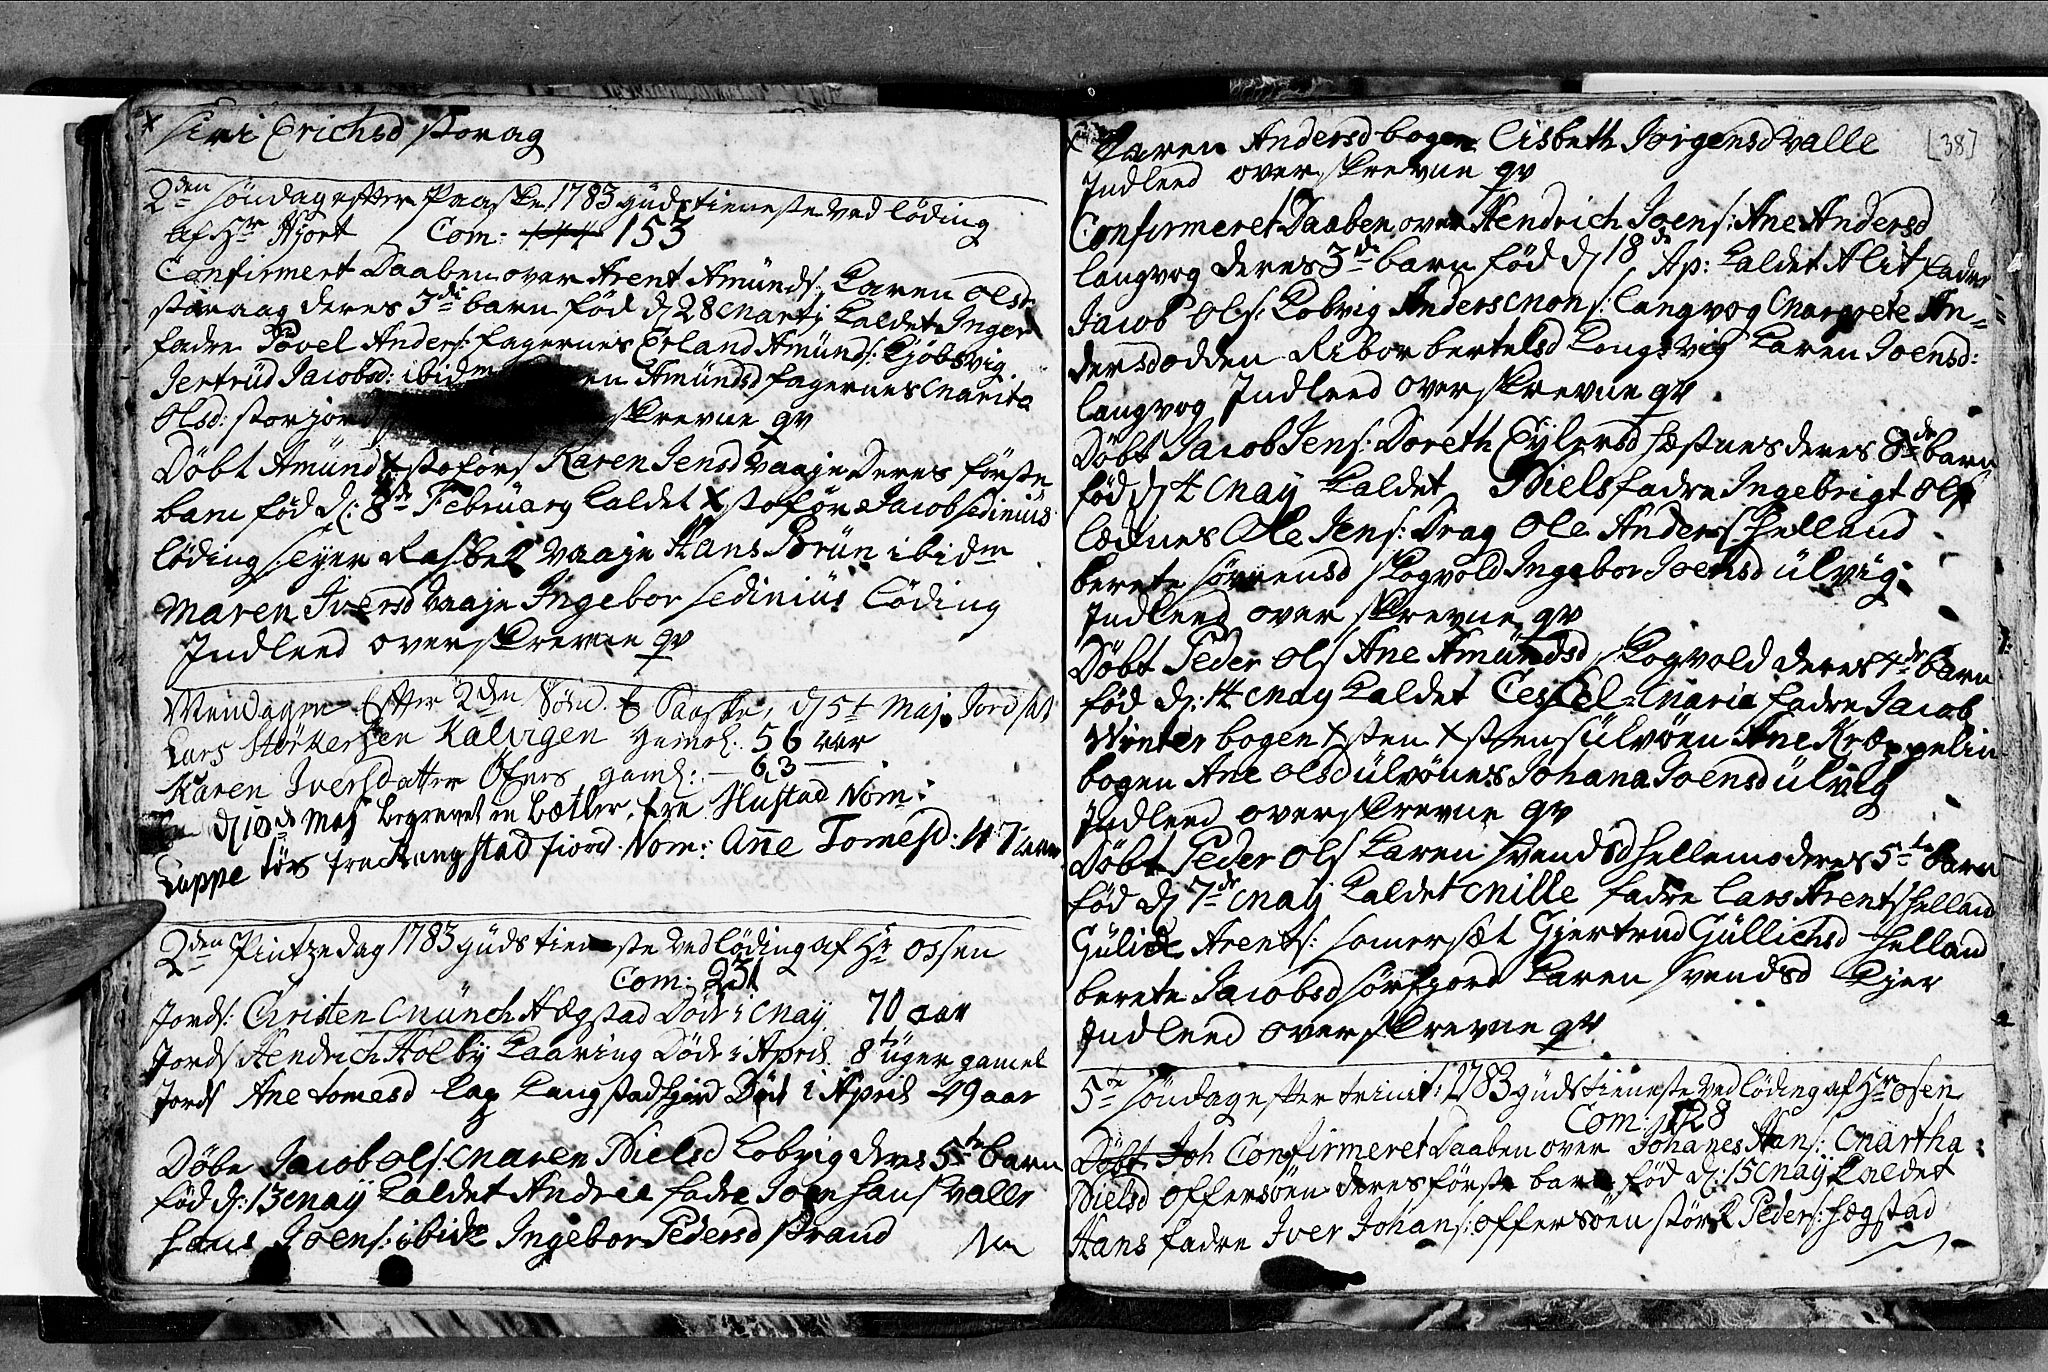 x siri Erichsd storag
2den søndag efter Paaske 1783 gudstieneste ved løding
af Hr Hjort / Com: 153
Confirmert Daaben over Arent Amunds: Karen Olsd
storaag deres 3die barn fød d 28 Martj kaldet Inger
fadre Povel Anders: fagernes Erland Amunds: Kjøbsvig
Jertrüd Jacobsd: ibidm en Amündsd fagernes Marita
Olsd: storjord skrevne qv
Døbt Amünd xstofers Karen Jensd vaaje Deres første
barn fød d: 8de Februarij kaldet xstofer Jacob sedinius
løding sejer Rasbek vaaje Hans Brün ibidm
Maren Iversd vaaje Ingebor sedinius løding
Indleed overskrevne qv
Mendagen Efter 2den Sønd. E Paaske, d 5t Maj. Jordfæt
Lars Størkersen Kalvigen gamel. 56 aar
Karen Iversdatter Ofers gaml: — 63 —
d 10de Maj begravet en betler, fra Hustad Nom:
Lappe fra Langstad fiord. Nom: Anne Tomesd. 47 aar
2den Pintzedag 1783 gudstieneste ved løding af Hr Ossen
Com: 251
Jords: Christen Münch Hægstad Døde i May 70 aar
Jords Hendrich Holby Kaaring Døde i April 8t uger gamel
Jords Ane tomesd lap Langstadfjord Død i April 49 aar
Døbt Jacob Ols: Maren Nielsd Kobvig deres 5te barn
fød d: 13 May kaldet Andrea fadre Joen Hans valle
Hans Joens: ibidm Ingebor Pedersd strand
Karen Andersd bogen Lisbeth Jørgensd valle [38]
Indleed overskrevne qv
Confirmeret Daaben over Hendrich Joens: Ane Andersd
langvog deres 3de barn fød d 18de Ap: kaldet Alit fadre
Jacob Ols: Kobvig Anders Mons: langvog Margrete An-
dersd odden Ribor bertelsd Kongsvig Karen Joensd:
langvog Indleed overskrevne qv
Døbt Jacob Jens: Doreth Eylersd hæstnes deres 8de barn
fød d 4 May kaldet Niels fadre Ingebrigt Ols
lødnes Ole Jens: Drag Ole Anders helland
berete sørrensd skogvold Ingebor Joensd ülvig
Indleed overskrevne qv
Døbt Peder Ols Ane Amündsd skogvold deres 4de barn
fød d: 14 May kaldet Cessel-Maria fadre Jacob
Winter bogen xsten xstens ülvøen Ane Kræppelin
bogen Ane Olsd ülvønes Johana Joensd ülvig
Indleed overskrevne qv
Døbt Peder Ols Karen svendsd hellemo deres 5te barn
fød d 7de May kaldet Mille fadre Lars Arents helland
Gülich Arents: somersæt Gjertrud Güllichsd helland
berete Jacobsd sørfjord Karen svendsd Kjer
Indleed overskrevne qv
5te søndag efter trinit: 1783 gudstieneste ved løding af Hr Osen
Com: 128
Døbt Joh Confirmeret Daaben over Johanes Hans: Martha
Nielsd offersøen deres første barn fød d: 15 May kaldet
Hans fadre Iver Johans: offersøen størk Peders: hægstad